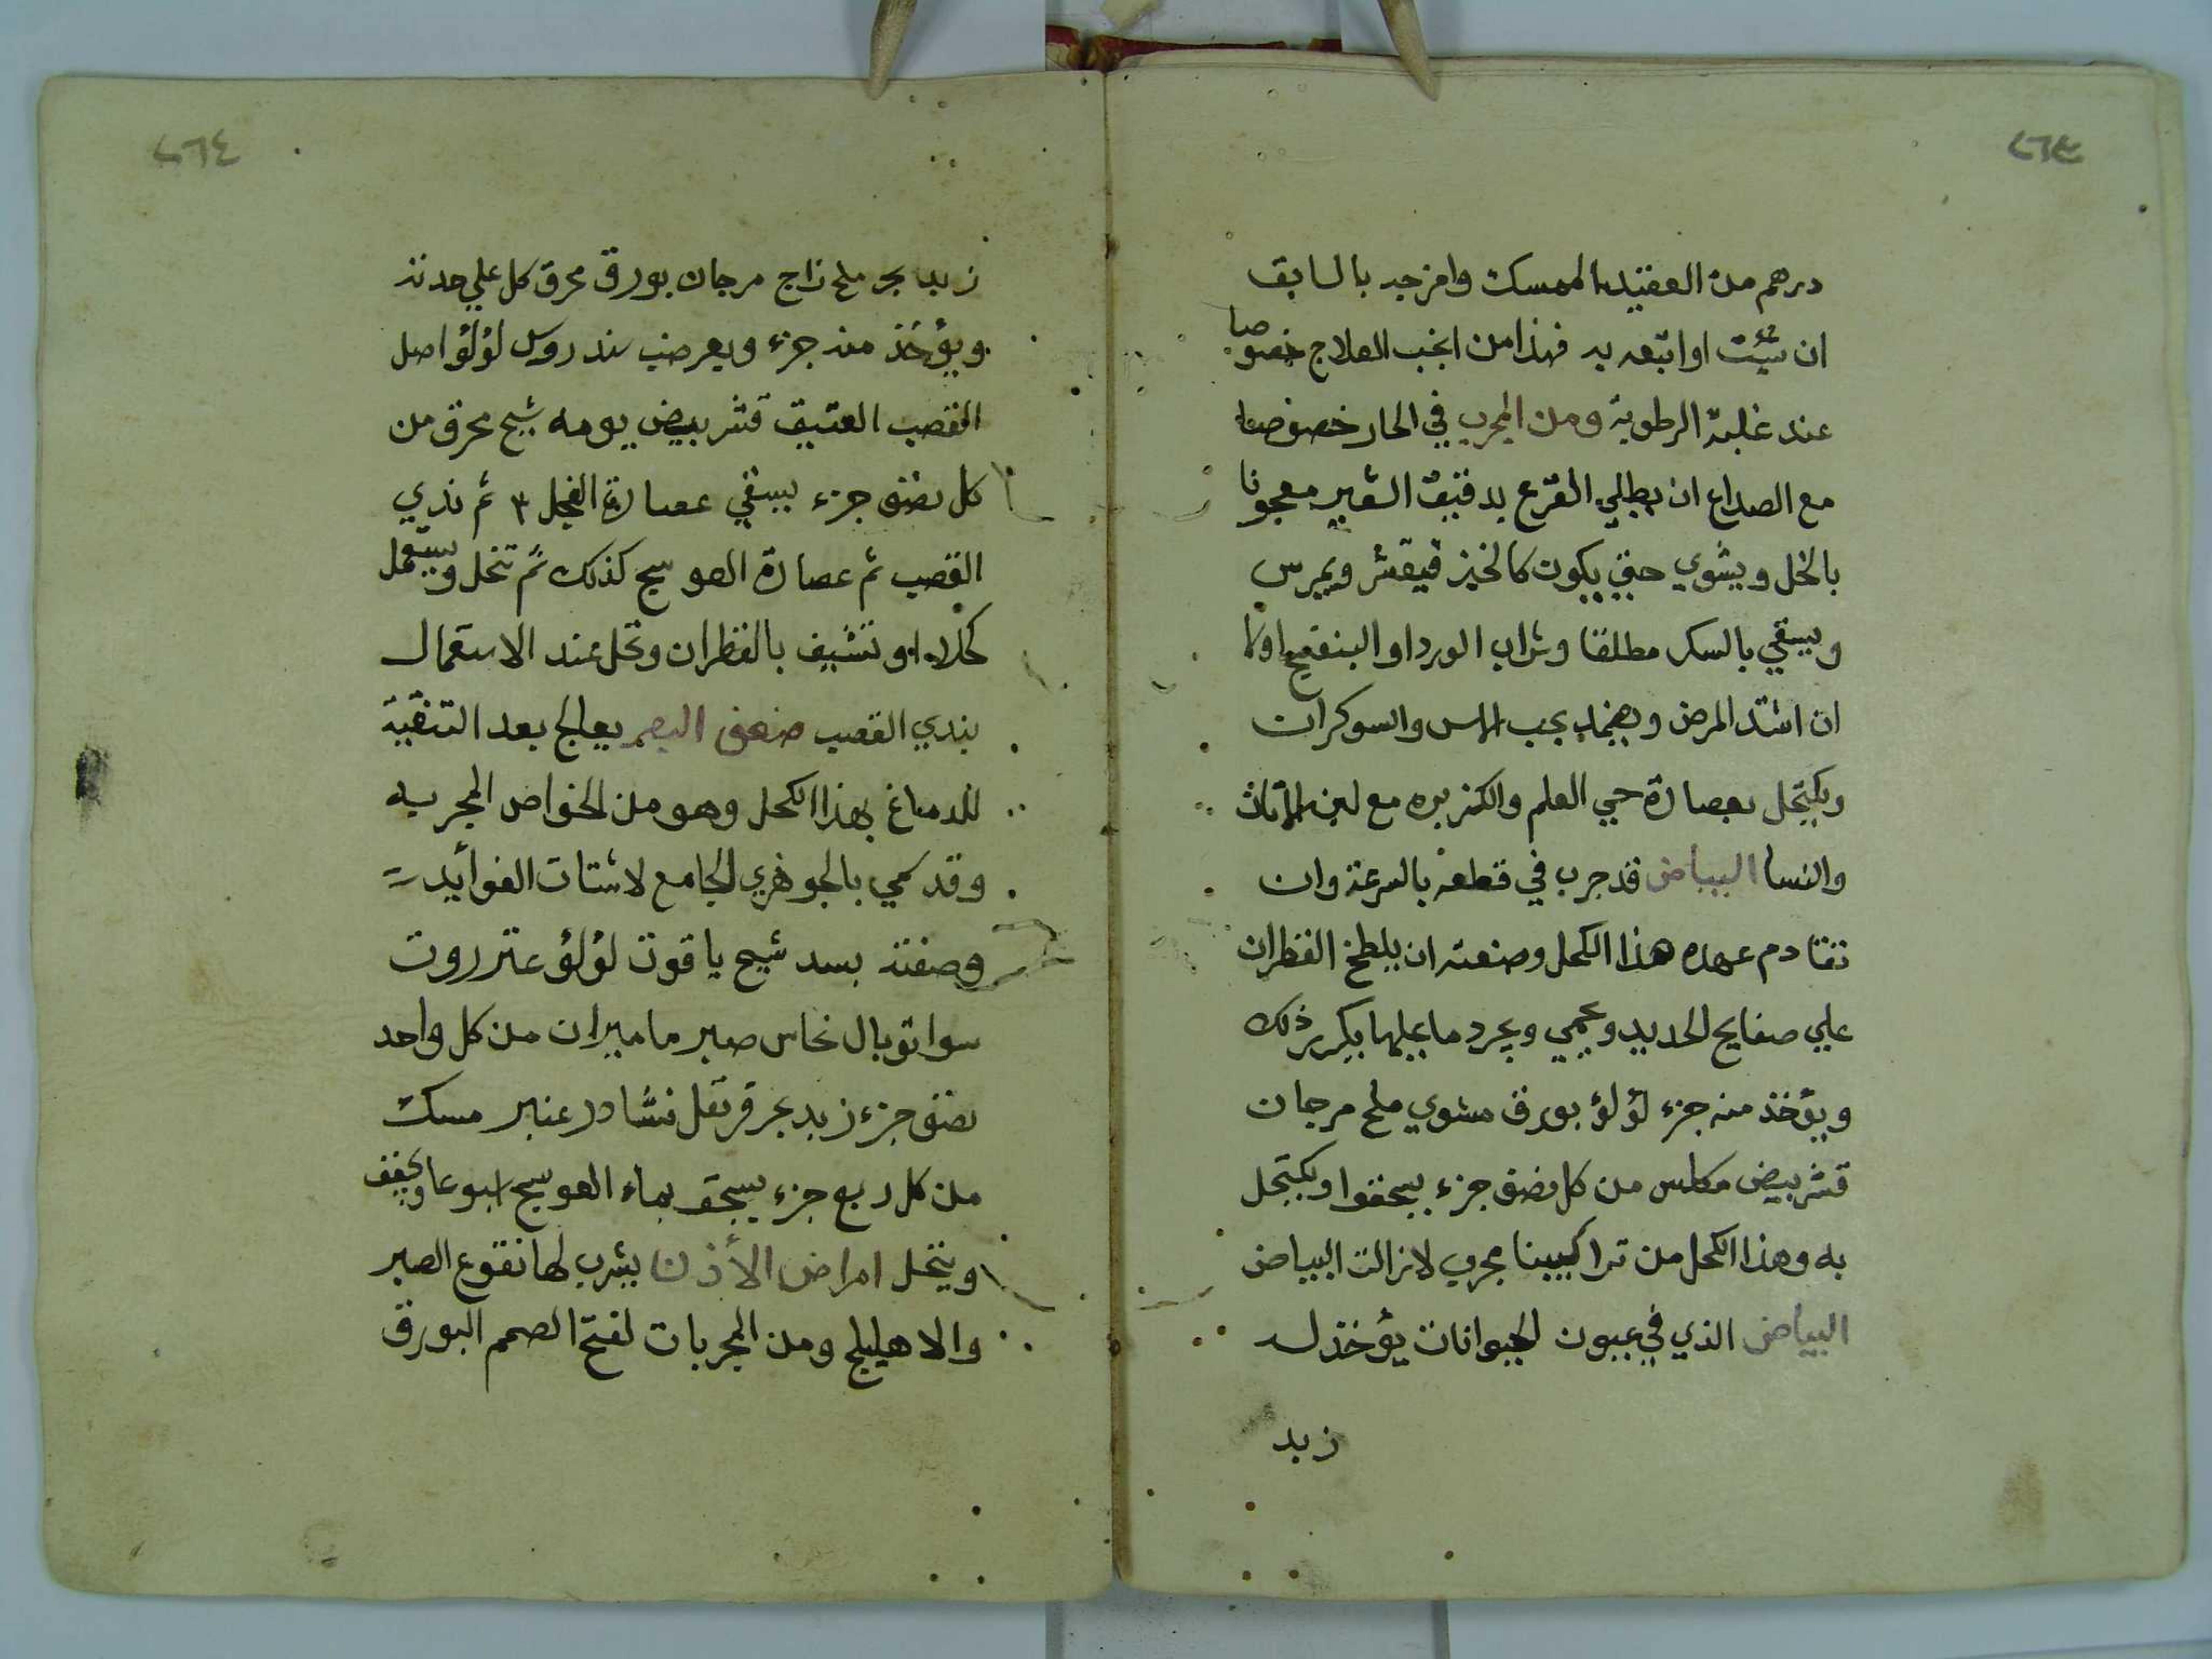 ٢٦٣
درهم من العقيد الممسك وامزجه بالسابق
ان شئت او اتبعه به فهذا من انجب العلاج خصوصا
عند غلبة الرطوبة ومن المجرب في الحار خصوصا
مع الصداع ان يطلي القرع بدقيق الشعير معجونا
بالخل ويشوي حتي يكون كالخبز فيقشر ويمرس
ويسقي بالسكر مطلقا وشراب الورد او البنفسج اولا
ان اشتد المرض ويضمد بحب الاس والسوكران
ويكتحل بعصارة حي العلم والكزبره مع لبن الاتان
والنسا البياض قد جرب في قطعه بالسرعة وان
تقادم عهده هذا الكحل وصنعته ان يلطخ القطران
علي صفايح الحديد ويحمي ويجرد ما عليها يكرر ذلك
ويؤخذ منه جزء لؤلؤ بورق مشوي ملح مرجان
قشر بيض مكلس من كل نصف جزء يسحقوا ويكتحل
به وهذا الكحل من تراكيبنا مجرب لازالت البياض
البياض الذي في عيون الحيوانات يؤخذ له
زبد
٢٦٤
زبد بحر ملح زاج مرجان بورق محرق كل علي حدته
ويؤخذ منه جزء وبعر ضب سندروس لؤلؤ اصل
القصب العتيق قشر بيض يومه شيح محرق من
كل نصف جزء يسقي عصارة الفجل ٣ ثم ندي
القصب ثم عصارة العوسج كذلك ثم تنخل ويستعمل
كحلا او تشيف بالقطران وتحل عند الاستعمال
بندي القصب ضعف البصر يعالج بعد التنقية
للدماغ بهذا الكحل وهو من الخواص المجربه
وقد سمي بالجوهري الجامع لاشتات الفوائيد
وصفته بسد شيح ياقوت لؤلؤ عنزروت
سوا توبال نحاس صبر ماميران من كل واحد
نصف جزء زبد بحر قرنفل نشادر عنبر مسك
من كل ربع جزء يسحق بماء العوسج اسبوعا ويجفف
وينخل امراض الأذن يشرب لها نقوع الصبر
والاهليلج ومن المجربات لفتح الصمم البورق